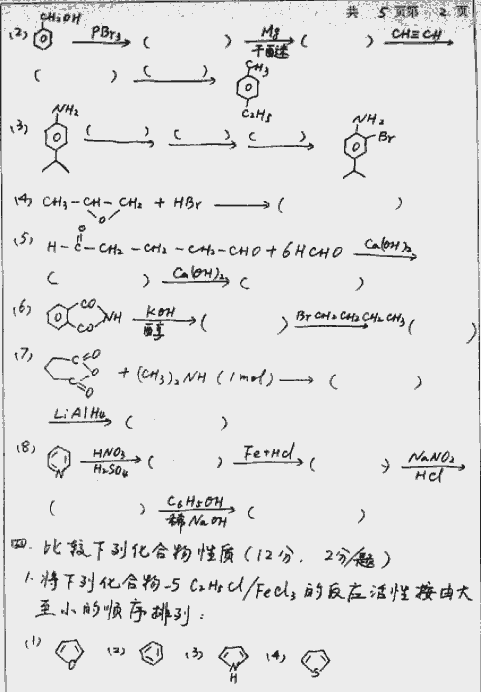 共 5 页第 2 页
(2) CH₂OH PBr₃ ( ) Mg 干醚 ( ) CH≡CH
( ) ( ) CH₃ C₂H₅
(3) NH₂ ( ) ( ) ( ) NH₂ Br
(4) CH₃-CH-CH₂ O + HBr ( )
(5) H-C-CH₂-CH₂-CH₂-CHO + 6HCHO Ca(OH)₂ O
( ) Ca(OH)₂ ( )
(6) CO CO NH KOH 醇 ( ) BrCH₂CH₂CH₂CH₃ ( )
(7) C=O O C=O + (CH₃)₂NH (1mol) ( )
LiAlH₄ ( )
(8) N HNO₃ H₂SO₄ ( ) Fe+HCl ( ) NaNO₂ HCl
( ) C₆H₅OH 稀NaOH ( )
四. 比较下列化合物性质(12分, 2分/题)
1. 将下列化合物与 C₂H₅Cl/FeCl₃ 的反应活性按由大
至小的顺序排列:
(1) O (2) (3) N H (4) S